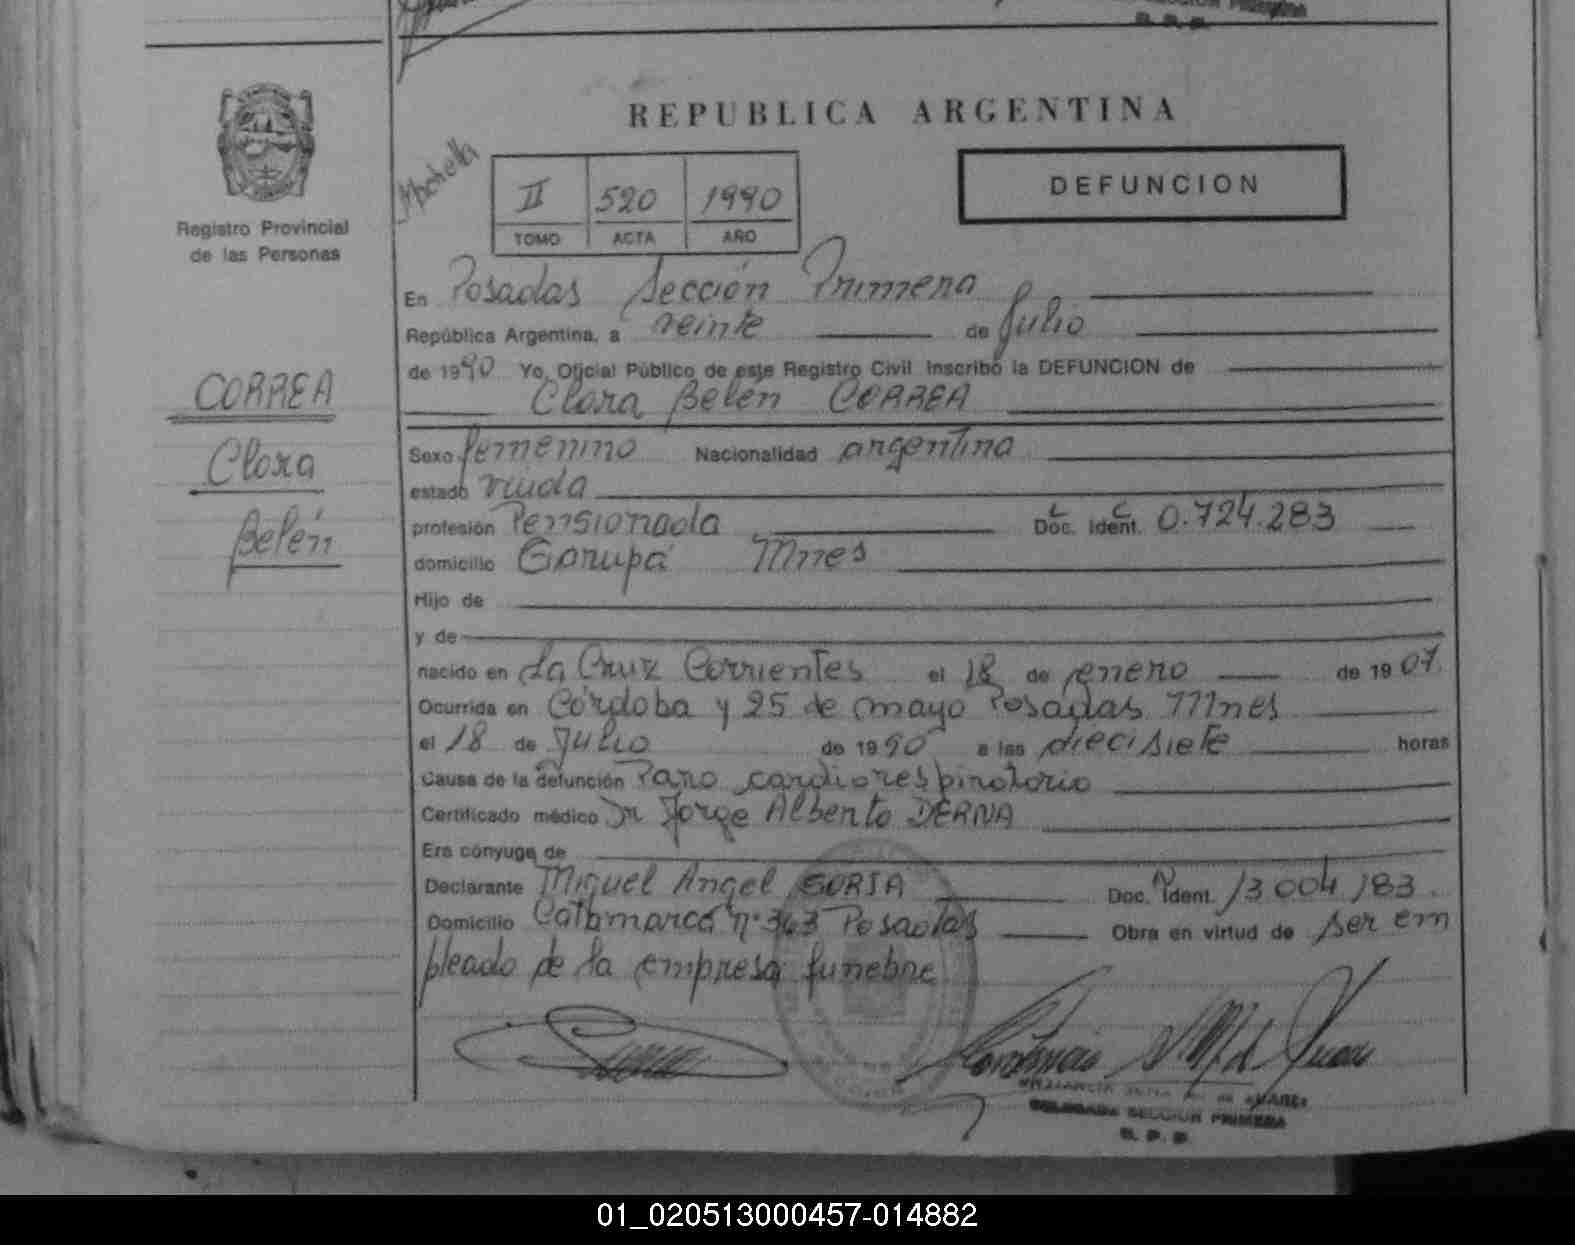 REPUBLICA ARGENTINA
Registro Provincial
de las Personas
II 520 1990
TOMO ACTA AÑO
DEFUNCION
CORREA
Clara
Belén
En Posadas Sección Primera
República Argentina, a veinte de Julio
de 1990 Yo, Oficial Público de este Registro Civil Inscribo la DEFUNCION de
Clara Belén CORREA
Sexo femenino Nacionalidad argentina
estado viuda
profesión Pensionada Doc. Ident. L C 0.724.283
domicilio Garupá Mnes
Hijo de
y de
nacido en La Cruz Corrientes el 18 de enero de 1907.
Ocurrida en Córdoba y 25 de mayo Posadas Mnes
el 18 de Julio de 1990 a las diecisiete horas
Causa de la defunción Paro cardiorespiratorio
Certificado médico Dr Jorge Alberto DERNA
Era cónyuge de
Declarante Miguel Angel SORIA Doc. Ident. 13.004.183.
Domicilio Catamarca nº 363 Posadas Obra en virtud de ser em
pleado de la empresa funebre
DELEGADA SECCION PRIMERA
R. P. P.
01_020513000457-014882